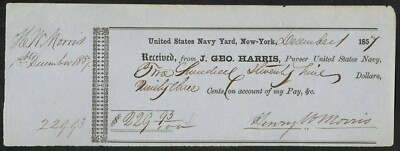 H. W. Morris
1st December 1857
229.93
United States Navy Yard, New-York, December 1 1857
Received, from J. GEO. HARRIS, Purser United States Navy,
Two Hundred Twenty Nine Dollars,
Ninety three Cents on account of my Pay, &c.
$ 229 93/100
Henry W Morris